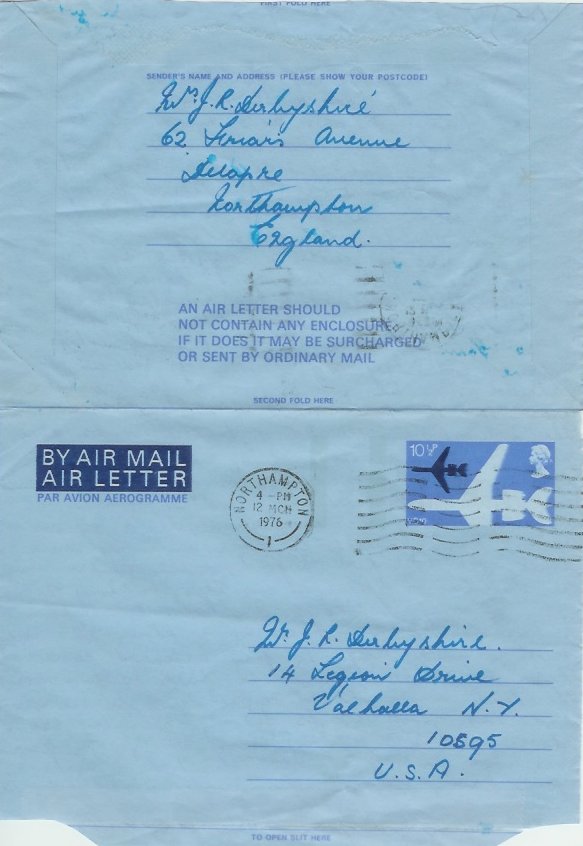 FIRST FOLD HERE
SENDER'S NAME AND ADDRESS (PLEASE SHOW YOUR POSTCODE)
Mr. J. R. Derbyshire
62 Friars Avenue
Delapre
Northampton
England.
AN AIR LETTER SHOULD
NOT CONTAIN ANY ENCLOSURE
IF IT DOES IT MAY BE SURCHARGED
OR SENT BY ORDINARY MAIL
SECOND FOLD HERE
BY AIR MAIL
AIR LETTER
PAR AVION AEROGRAMME
NORTHAMPTON
4 - PM
12 MCH
1976
1
10½P
Mr. J. R. Derbyshire.
14 Legion Drive
Valhalla N.Y.
10595
U.S.A.
TO OPEN SLIT HERE